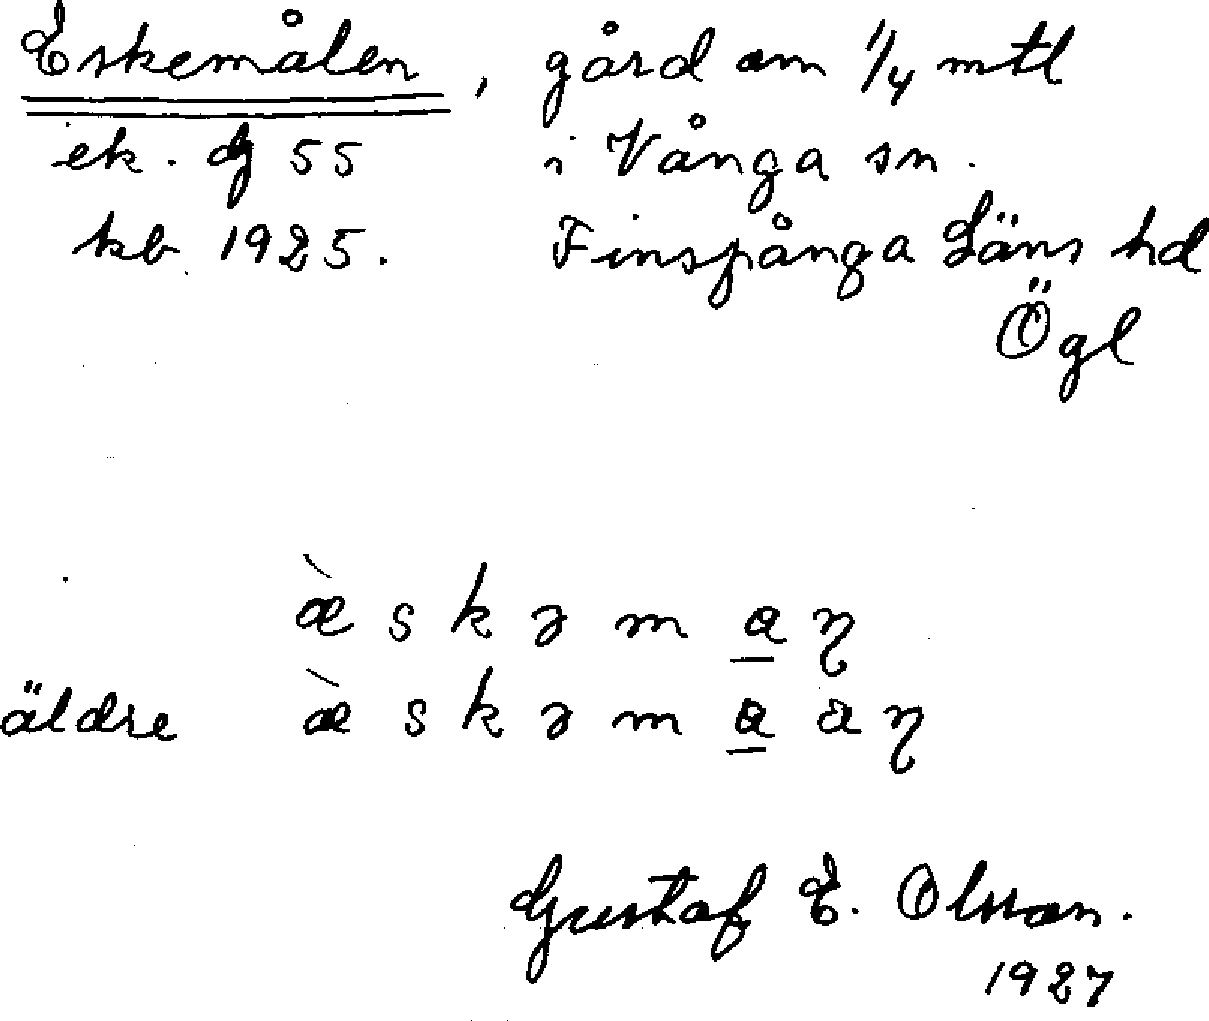 Eskemålen, gård om 1/4 mtl
ek. dj 55 i Vånga sn.
kb 1925. Finspånga Läns hd
Ögl
æ̀ s k ə m a̲ ŋ
äldre æ̀ s k ə m a̲ a ŋ
Gustaf E. Olsson.
1927